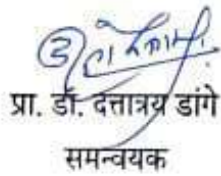 प्रा. डॉ. दत्तात्रय डांगे
समन्वयक